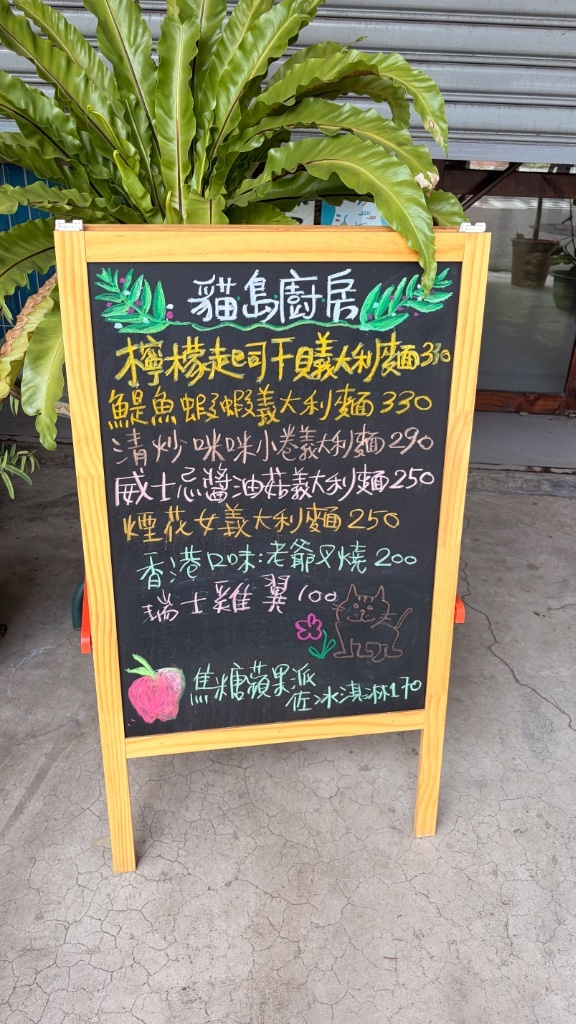 貓島廚房
檸檬起司干貝義大利麵330
鯷魚蝦蝦義大利麵330
清炒咪咪小卷義大利麵290
威士忌醬油菇義大利麵250
煙花女義大利麵250
香港口味:老爺叉燒200
瑞士雞翼100
焦糖蘋果派
佐冰淇淋170